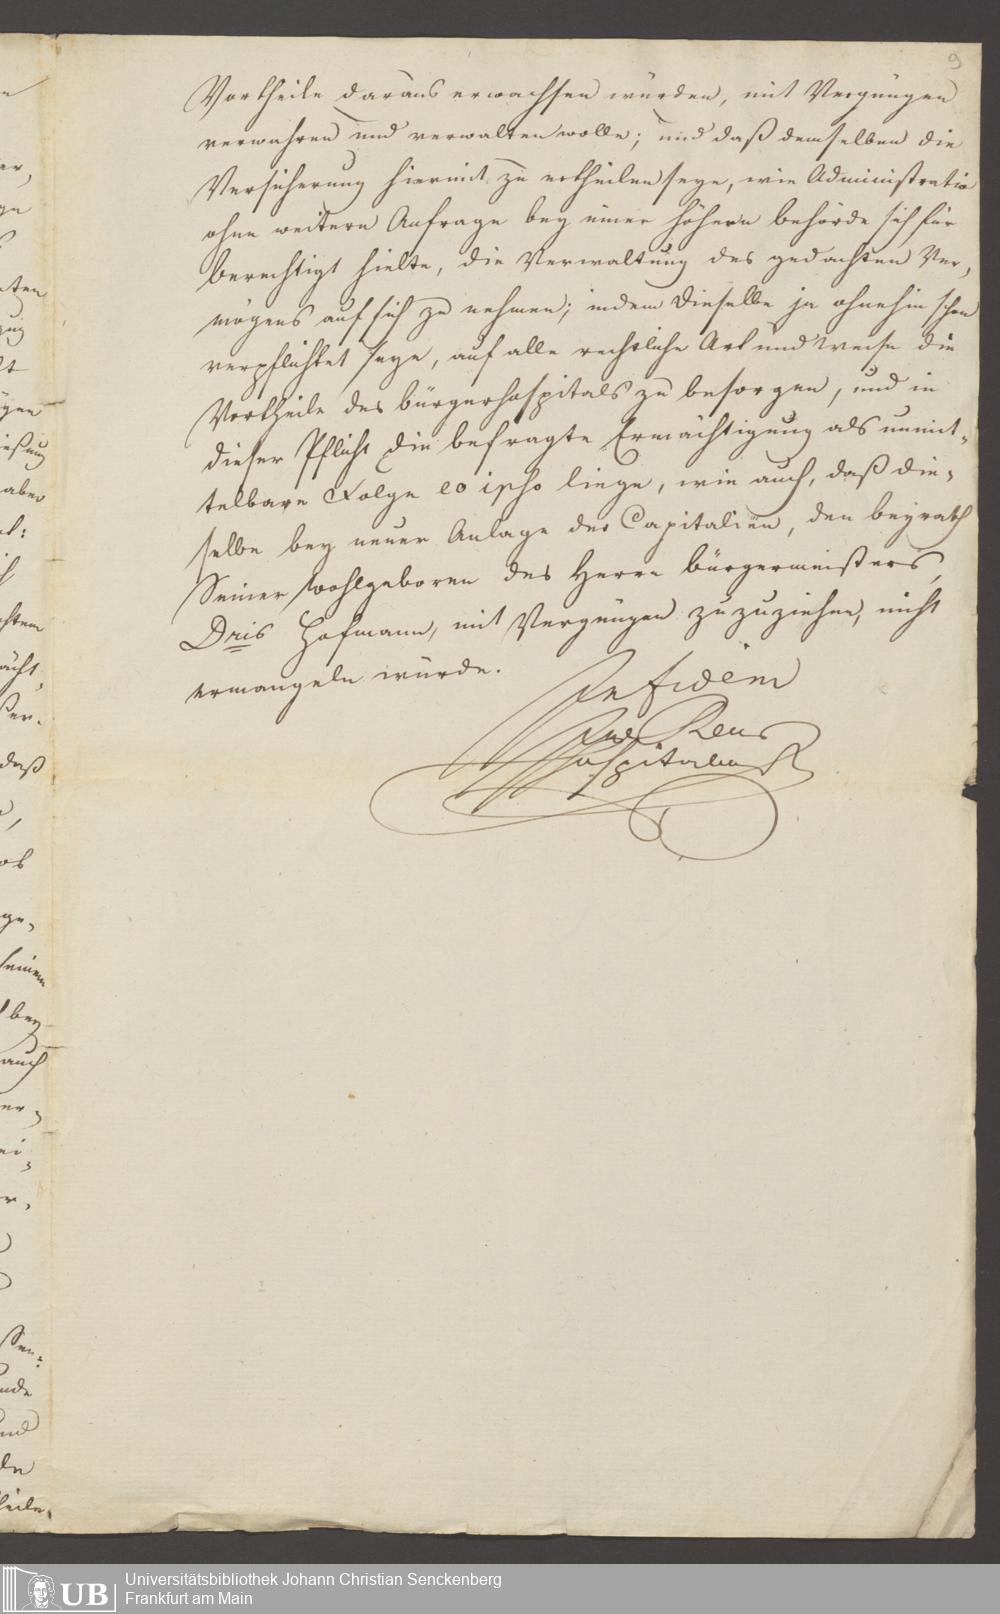 9
Vortheile daraus erwachsen würden, mit Vergnügen
verwahren und verwalten wolle; und daß demselben die
Versicherung hiermit zu ertheilen seye, wie Administratio
ohne weitern Anfrage bey einer höhern behörde sich für
berechtigt hielte, die Verwaltung des gedachten Ver,
mögens auf sich zu nehmen; indem dieselbe ja ohnehin schon
verpflichtet seye, auf alle rechtliche Art und Weise die
Vortheile des bürgerhospitals zu besorgen, und in
dieser Pflicht die befragte Ermächtigung als unmit,
telbare Folge eo ipso liege, wie auch, daß die,
selbe bey neuer Anlage der Capitalien, den beyrath
Seiner Wohlgeboren des Herrn bürgermeisters,
Dris Hofmann, mit Vergnügen zuzuziehen, nicht
ermangeln würde.
In fidem
Hospitalmstr
UB
Universitätsbibliothek Johann Christian Senckenberg
Frankfurt am Main